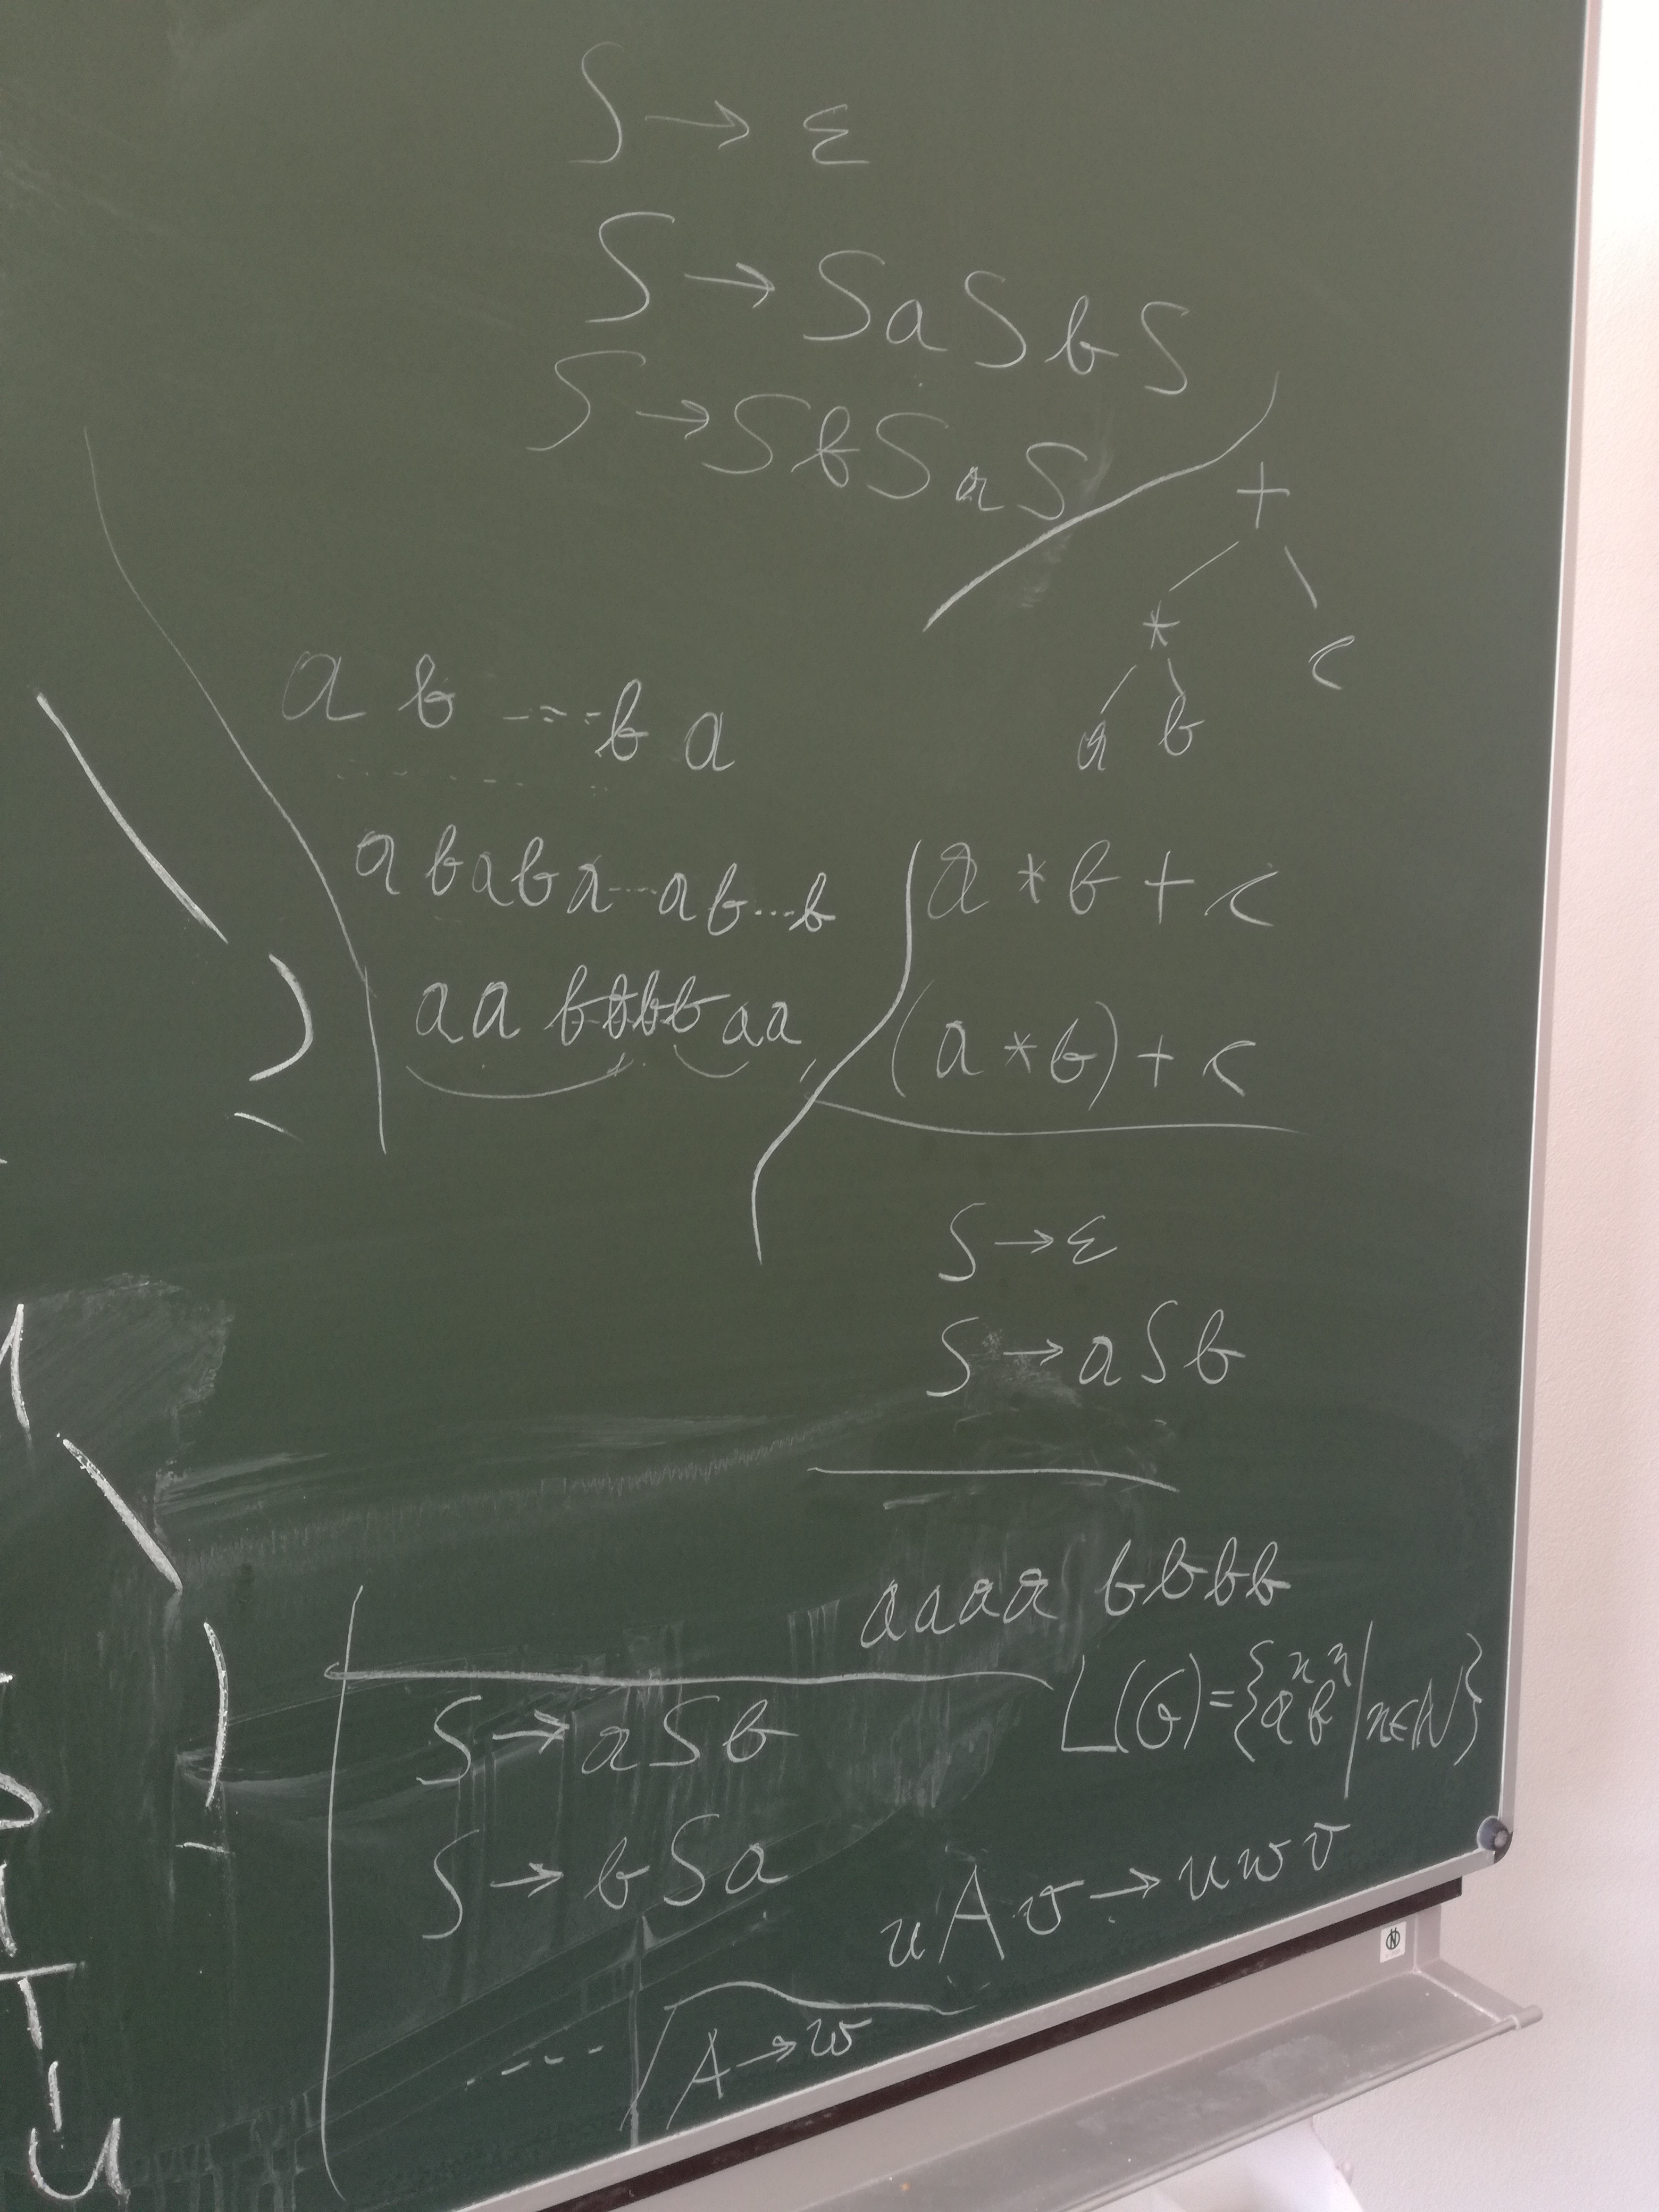 S → ε
S → SaSbS
S → SbSaS
+
* c
a b
a b ---- b a
ababa...ab...b
aabbbbaa
a * b + c
(a * b) + c
S → ε
S → aSb
aaaa bbbb
L(G) = {aⁿbⁿ | n∈ℕ}
S → aSb
S → bSa
uAv → uwv
--- A → w